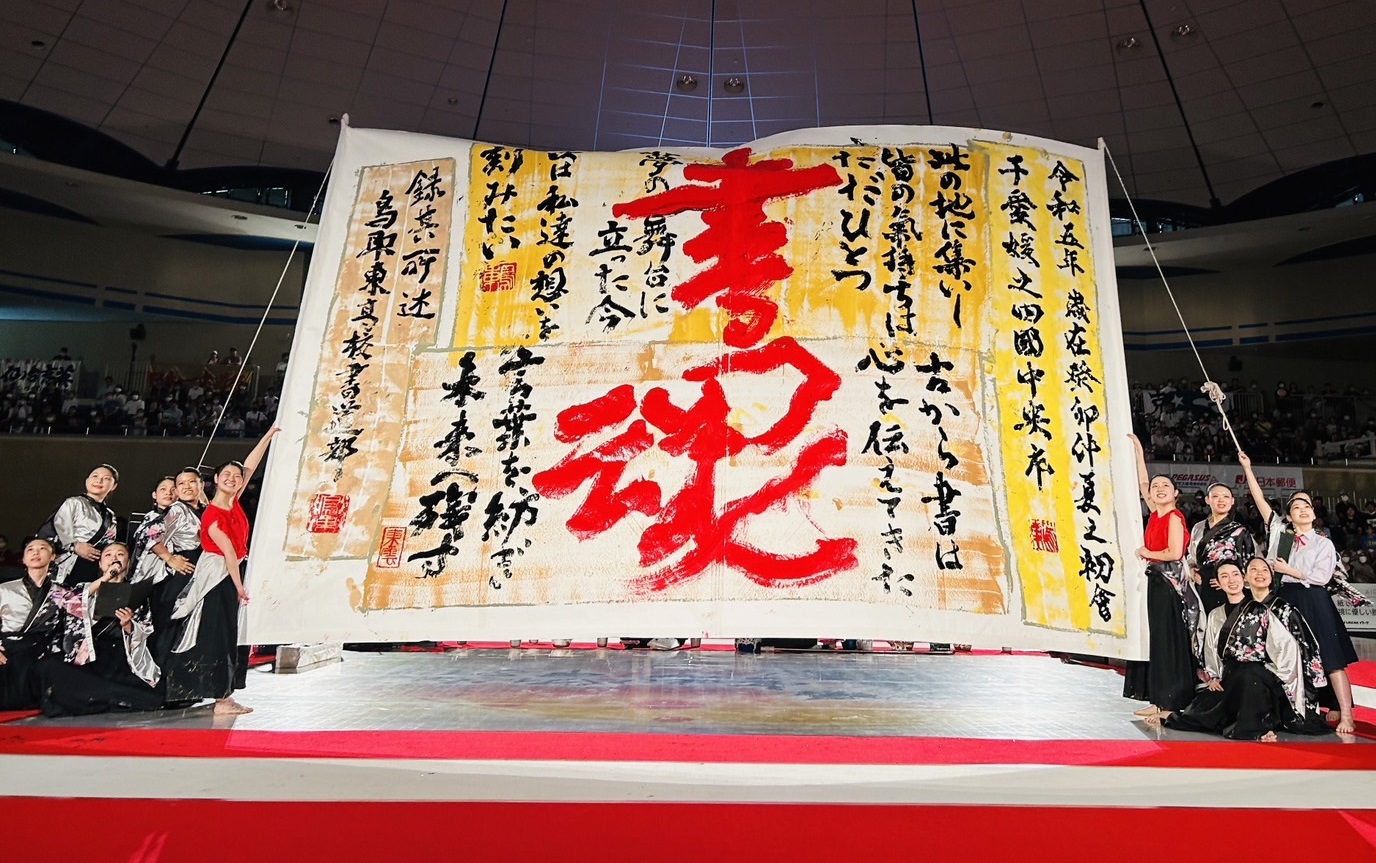 令和五年 歳在癸卯仲夏之初會
于愛媛之四國中央市
此の地に集いし
皆の氣持ちは
ただひとつ
古から書は
心を伝えてきた
書魂
夢の舞台に
立った今
は私達の想いを
刻みたい
言葉を紡ぎ
未来へ残す
所述
鳥取東高校書道部
東雲
PEGASUS
日本郵便